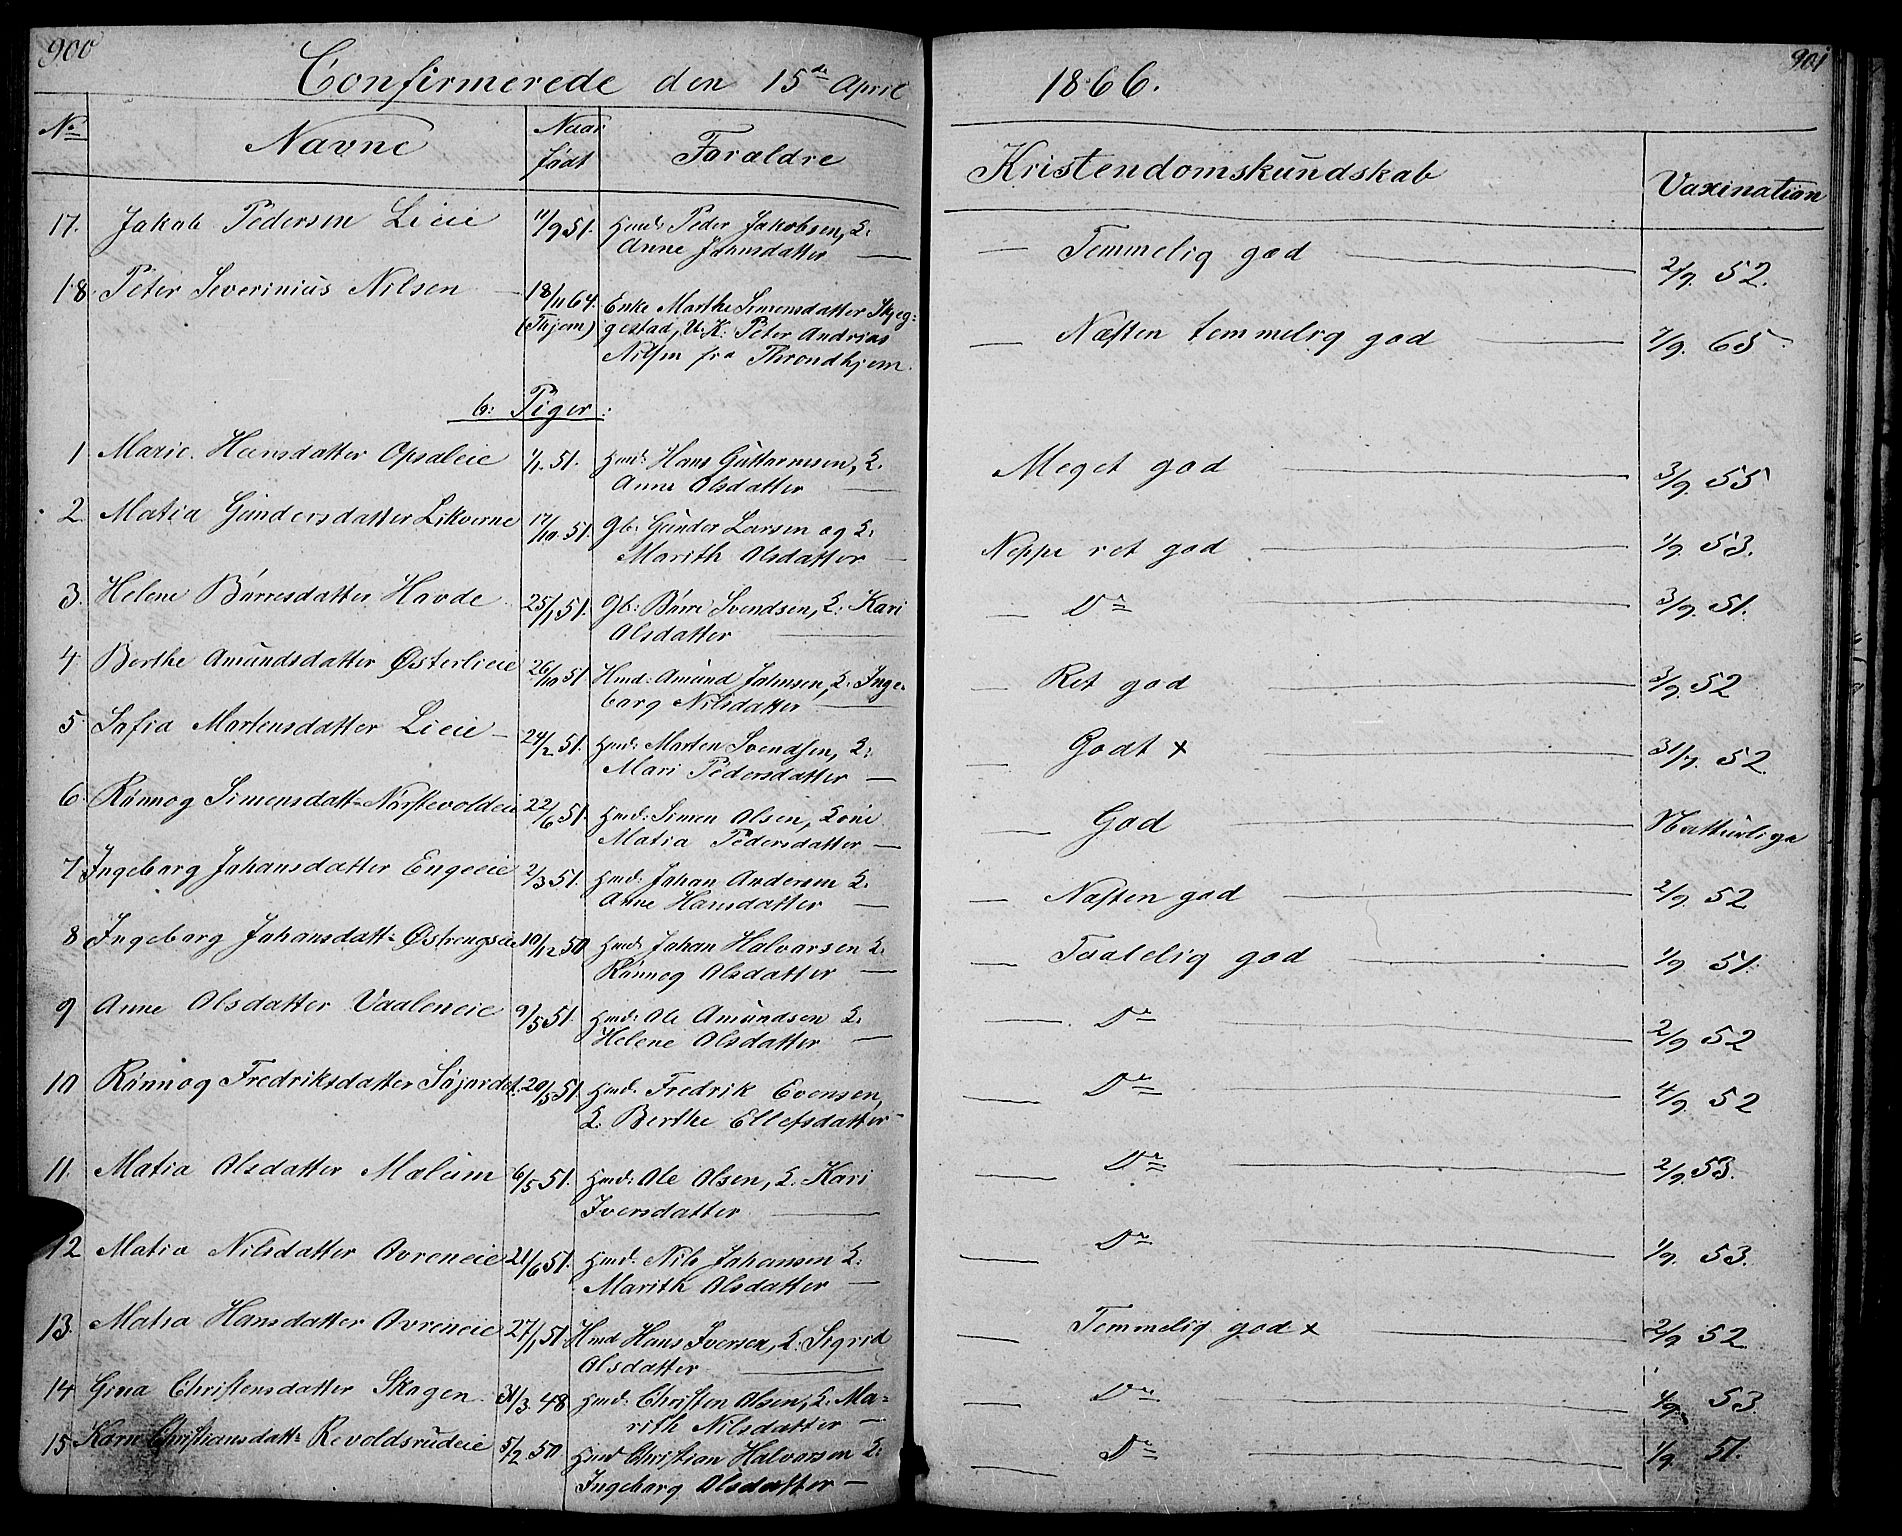 900
Confirmerede den 15de April
1866.
901
No
Navne
Naar født
Forældre
Kristendomskundskab
Vaxination
17. Jakob Pedersen Lieie 11/9 51. Hmd: Peder Jakobsen, K.
Anne Johnsdatter — Temmelig god — 2/9. 52.
18. Peter Severinius Nilsen — 18/11 64. Enke Marthe Simensdatter Skjeg-
(Thjem) gestad, U. K. Peter Andreas
Nilsen fra Throndhjem. — Næsten temmelig god — 7/9. 65.
b: Piger:
1 Marie Hansdatter Opsaleie 1/1. 51. Hmd: Hans Guttormsen, K.
Anne Olsdatter — Meget god — 3/9. 55
2. Matia Gundersdatter Likverne 17/10. 51. Gb: Gunder Larsen og K.
Marith Olsdatter — Neppe ret god — 1/9. 53.
3. Helene Börresdatter Hovde 25/1 51. Gb: Börre Svendsen, K. Kari
Olsdatter — Do — 3/9. 51.
4. Berthe Amundsdatter Østerlieie 26/10 51 Hmd: Amund Johnsen, K. Inge-
borg Nilsdatter — Ret god — 3/9. 52
5 Sofia Mortensdatter Lieie — 24/2 51. Hmd: Morten Svendsen, K.
Mari Pedersdatter — Godt x — 31/7. 52
6. Rönnog Simensdatt= Nörstevoldeie 22/6 51. Hmd: Simen Olsen, Kone
Matia Pedersdatter — God — Natturlige
7 Ingeborg Johansdatter Engeeie 2/3 51. Hmd: Johan Andersen K.
Anne Hansdatter — Næsten god — 2/9. 52
8 Ingeborg Johansdatt= Østengseie 10/12 50 Hmd: Johan Halvorsen K.
Rönnog Olsdatter — Taalelig god — 1/9. 51.
9 Anne Olsdatter Vaaleneie 9/5 51. Hmd: Ole Amundsen K.
Helene Olsdatter — Do — 2/9. 52
10 Rönnog Fredriksdatter Söjordet. 20/5 51. Hmd: Fredrik Evensen,
K. Berthe Ellefsdatter — Do — 4/9. 52
11. Matia Olsdatter Mælum 6/5 51. Hmd: Ole Olsen, K. Kari
Iversdatter — Do — 2/9. 53.
12 Matia Nilsdatter Ovreneie 21/6 51. Hmd: Nils Johansen K.
Marith Olsdatter — Do — 1/9. 53.
13. Matia Hansdatter Ovreneie 27/1 51 Hmd Hans Iversen, K. Sigrid
Olsdatter — Temmelig god x — 2/9. 52
14 Gina Christensdatter Skogen 31/3. 48 Hmd: Christen Olsen, K. Ma-
rith Nilsdatter — Do — 1/9. 53.
15 Karn Christiansdatt= Revoldsrudeie 5/2 50. Hmd Christian Halvorsen K.
Ingeborg Olsdatter — Do — 1/9. 51.